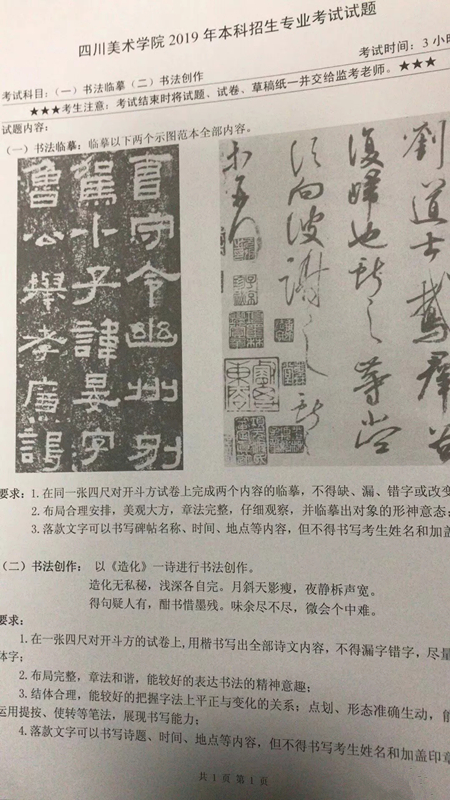 四川美术学院 2019 年本科招生专业考试试题
考试时间：3 小时
考试科目：（一）书法临摹（二）书法创作
★★★考生注意：考试结束时将试题、试卷、草稿纸一并交给监考老师。★★★
试题内容：
（一）书法临摹：临摹以下两个示图范本全部内容。
守令幽州别
驾卜子諱晏字
魯公舉孝廉
劉道士鵝群
復歸也獻之等當
須向彼謝之獻之
要求：1.在同一张四尺对开斗方试卷上完成两个内容的临摹，不得缺、漏、错字或改变
2.布局合理安排，美观大方，章法完整，仔细观察，并临摹出对象的形神意态；
3.落款文字可以书写碑帖名称、时间、地点等内容，但不得书写考生姓名和加盖
（二）书法创作： 以《造化》一诗进行书法创作。
造化无私秘，浅深各自完。月斜天影瘦，夜静柝声宽。
得句疑人有，酣书惜墨残。味余尽不尽，微会个中难。
要求：
1.在一张四尺对开斗方的试卷上,用楷书写出全部诗文内容，不得漏字错字，尽量
体字；
2.布局完整，章法和谐，能较好的表达书法的精神意趣；
3.结体合理，能较好的把握字法上平正与变化的关系；点划、形态准确生动，能
运用提按、使转等笔法，展现书写能力；
4.落款文字可以书写诗题、时间、地点等内容，但不得书写考生姓名和加盖印章
共 1 页 第 1 页